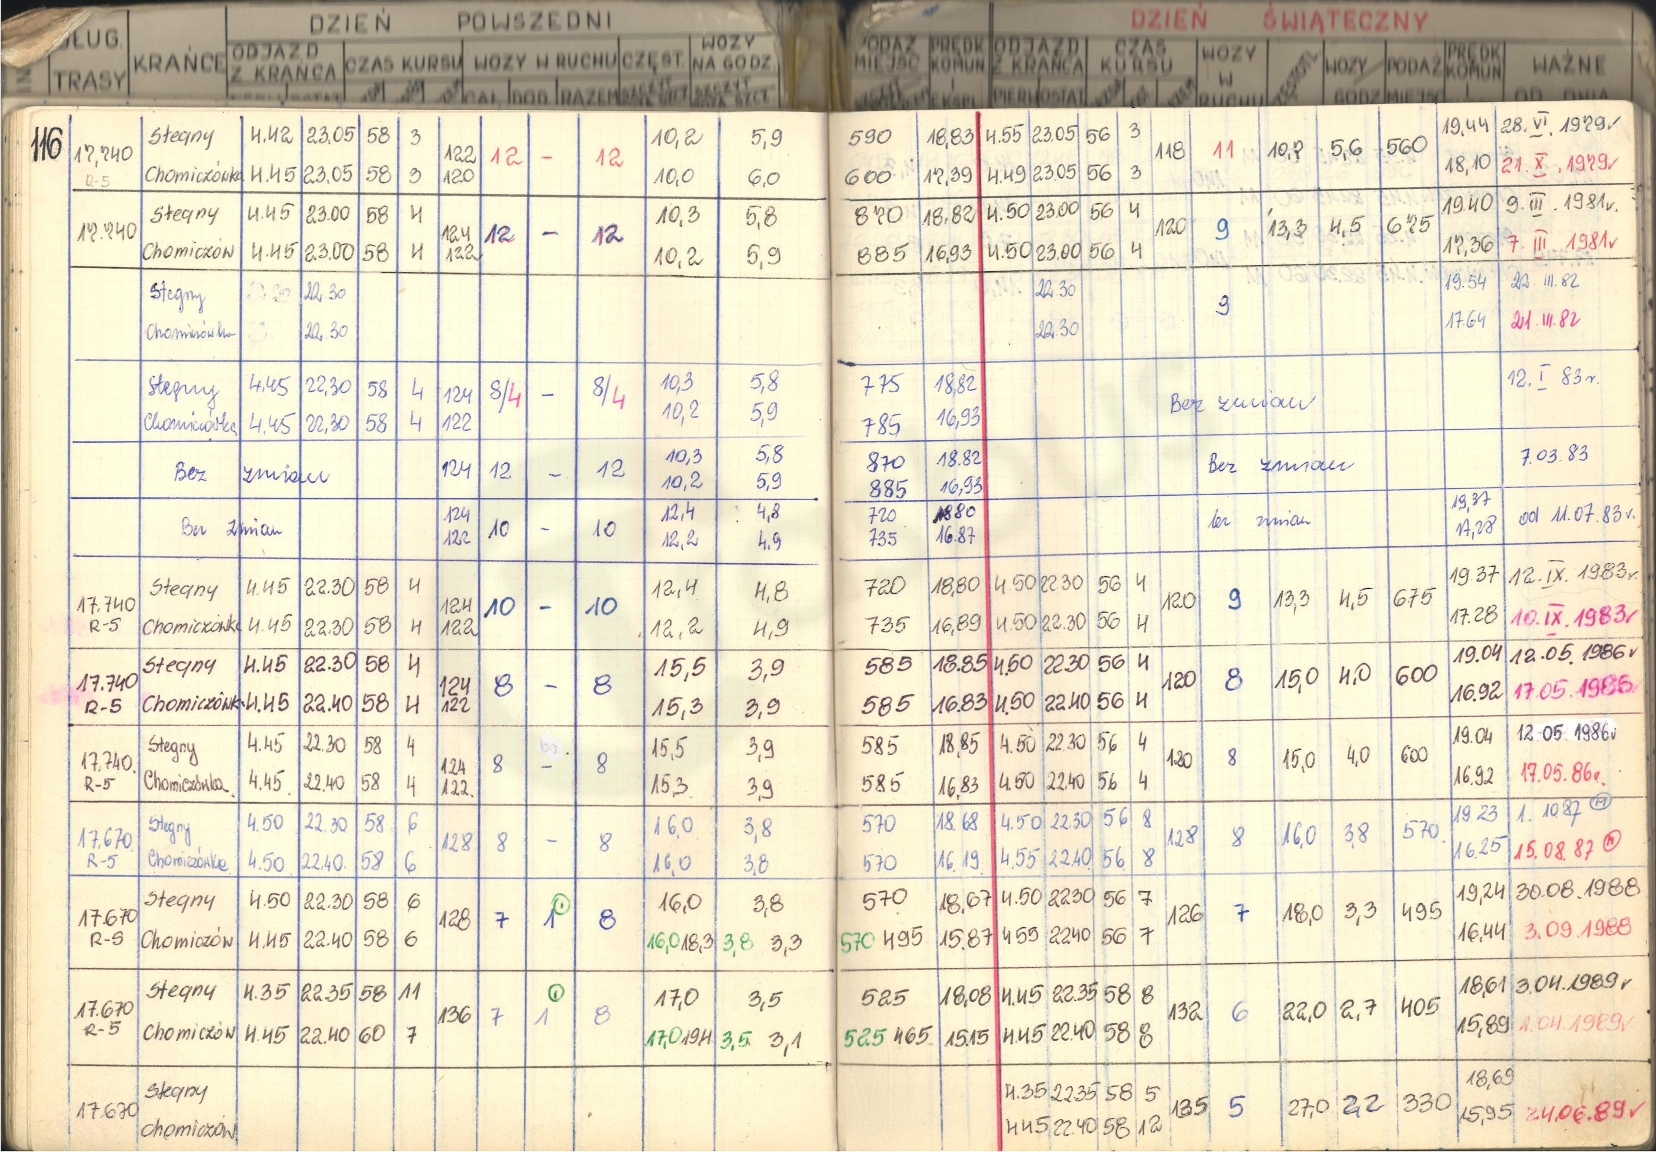 DZIEŃ POWSZEDNI DZIEŃ ŚWIĄTECZNY
DŁUG. TRASY KRAŃCE ODJAZD Z KRAŃCA CZAS KURSU WOZY W RUCHU CZĘST. WOZY NA GODZ. PODAŻ MIEJSC PRĘDK KOMUN ODJAZD Z KRAŃCA CZAS KURSU WOZY W RUCHU WOZY GODZ PODAŻ MIEJSC PRĘDK KOMUN WAŻNE OD DNIA
CAŁ. DOD. RAZEM
116
Stegny 4.42 23.05 58 3 10,2 5,9 590 18,83 4.55 23.05 56 3 19,44 28.VI.1979r
17,740 122 12 - 12 118 11 10,7 5,6 560
R-5 Chomiczówka 4.45 23.05 58 3 120 10,0 6,0 600 17,39 4.49 23.05 56 3 18,10 21.X.1979r
Stegny 4.45 23.00 58 4 10,3 5,8 870 18,82 4.50 23.00 56 4 19,40 9.III.1981r.
17.740 124 12 - 12 120 9 13,3 4,5 675
Chomiczów 4.45 23.00 58 4 122 10,2 5,9 885 16,93 4.50 23.00 56 4 17,36 7.III 1981r
Stegny 22.30 22.30 19.54 22.III.82
9
Chomiczówka 22.30 22.30 17.64 21.III.82
Stegny 4.45 22,30 58 4 124 8/4 - 8/4 10,3 5,8 775 18,82 12.I 83r.
Bez zmian
Chomiczówka 4.45 22,30 58 4 122 10,2 5,9 785 16,93
Bez zmian 124 12 - 12 10,3 5,8 870 18.82 Bez zmian 7.03.83
10,2 5,9 885 16,93
Bez zmian 124 10 - 10 12,4 4,8 720 18.80 bez zmian 19,37 od 11.07.83r.
122 12,2 4.9 735 16.87 17,28
Stegny 4.45 22.30 58 4 12,4 4,8 720 18,80 4.50 22.30 56 4 19.37 12.IX.1983r.
17.740 124 10 - 10 120 9 13,3 4,5 675
R-5 Chomiczówka 4.45 22.30 58 4 122 12,2 4,9 735 16,89 4.50 22.30 56 4 17.28 10.IX.1983r
Stegny 4.45 22.30 58 4 15,5 3,9 585 18.85 4.50 22.30 56 4 19.04 12.05.1986r
17.740 124 8 - 8 120 8 15,0 4,0 600
R-5 Chomiczówka 4.45 22.40 58 4 122 15,3 3,9 585 16.83 4.50 22.40 56 4 16.92 17.05.1986r
Stegny 4.45 22.30 58 4 15,5 3,9 585 18,85 4.50 22.30 56 4 19.04 12.05.1986r
17.740. 124 8 - 8 120 8 15,0 4,0 600
R-5 Chomiczówka. 4.45. 22.40 58 4 122. 15,3 3,9 585 16,83 4.50 22.40 56 4 16.92 17.05.86r.
Stegny 4.50 22.30 58 6 16,0 3,8 570 18.68 4.50 22.30 56 8 19.23 1.1087
17.670 128 8 - 8 128 8 16,0 3,8 570
R-5 Chomiczówka 4.50 22.40. 58 6 16,0 3,8 570 16.19. 4.55 22.40 56 8 16.25 15.08.87
Stegny 4.50 22.30 58 6 16,0 3,8 570 18,67 4.50 22.30 56 7 19,24 30.08.1988
17.670 128 7 1 8 126 7 18,0 3,3 495
R-5 Chomiczów 4.45 22.40 58 6 16,0 18,3 3,8 3,3 570 495 15.87 4.55 22.40 56 7 16,44 3.09.1988
Stegny 4.35 22.35 58 11 17,0 3,5 525 18,08 4.45 22.35 58 8 18,61 3.04.1989r
17.670 136 7 1 8 132 6 22,0 2,7 405
R-5 Chomiczów 4.45 22.40 60 7 17,0 19,4 3,5 3,1 525 465 15.15 4.45 22.40 58 8 15,89 1.04.1989r
Stegny 4.35 22.35 58 5 18,69
17.670 135 5 27,0 2,2 330
Chomiczów 4.45 22.40 58 12 15,95 24.06.89r